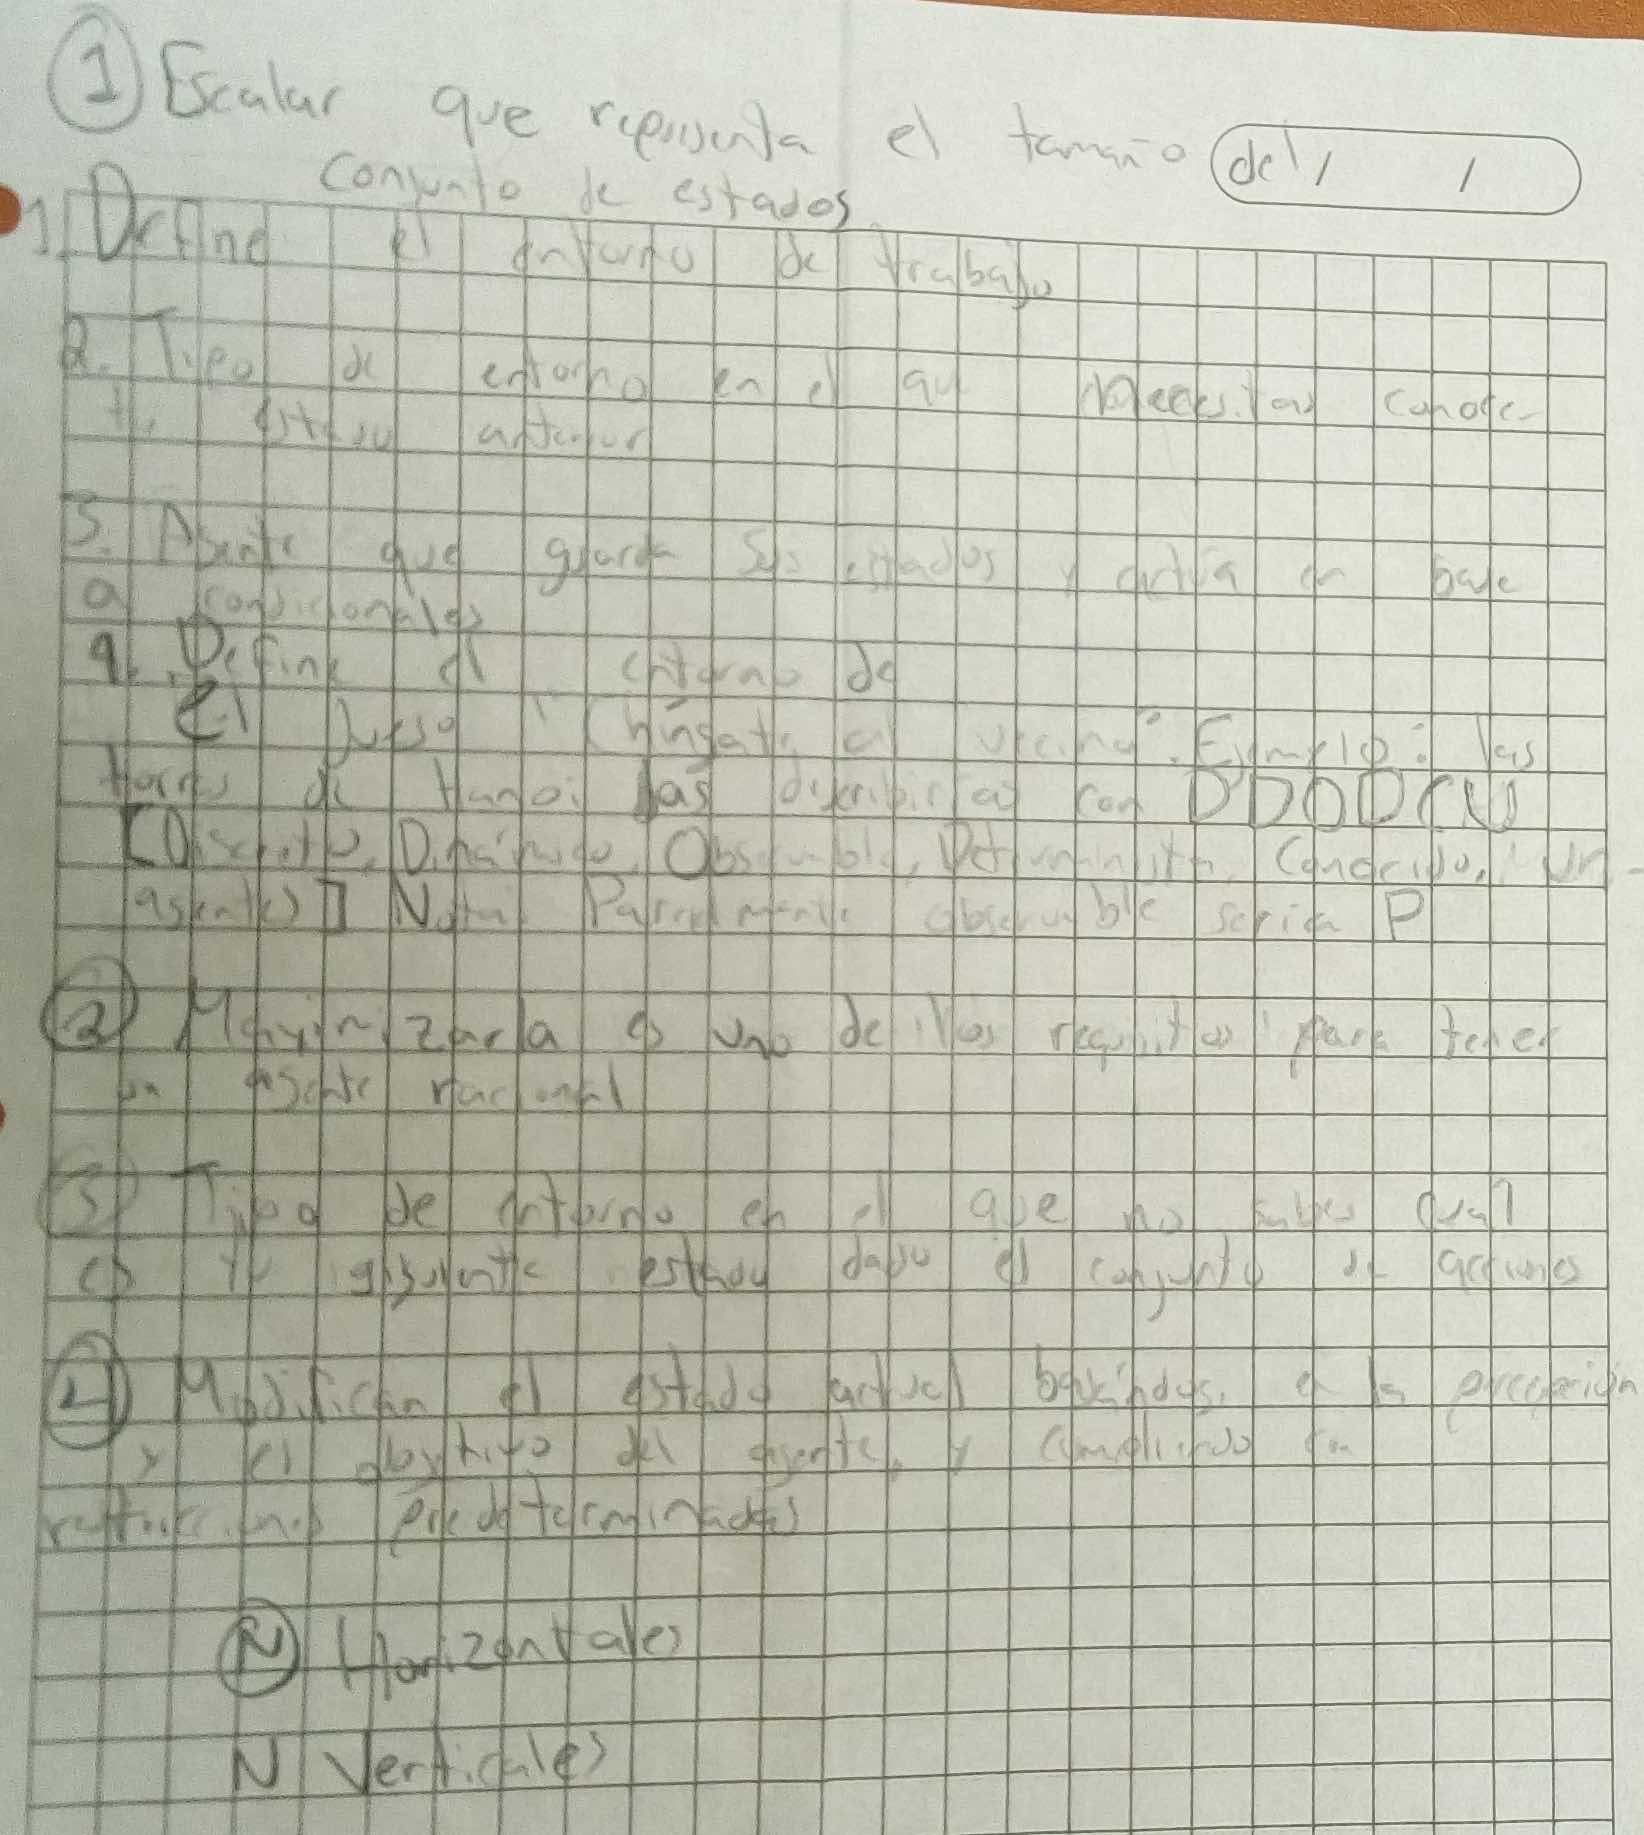 ① Escalar que representa el tamaño del
conjunto de estados
1. Define el entorno de trabajo
2. Tipo de entorno en el que Necesitas conocer
tu estado anterior
3. Agente que guarda sus estados y actúa en base
a condicionales
4. Define el entorno de
el juego "Chingate al vecino". Ejemplo: las
torres de Hanoi las describirías con DDODCU
[Discreto, Dinámico, Observable, Determinista, Conocido, Un-
agente] Nota: Parcialmente observable seria P
② Maximizarla es uno de los requisitos para tener
un agente racional
③ Tipo de entorno en el que no sabes cual
es tu siguiente estado dado el conjunto de acciones
④ Modifican el estado actual basándose en la percepción
y el objetivo del agente, y cumpliendo con
restricciones predeterminadas
Ⓝ Horizontales
N Verticales